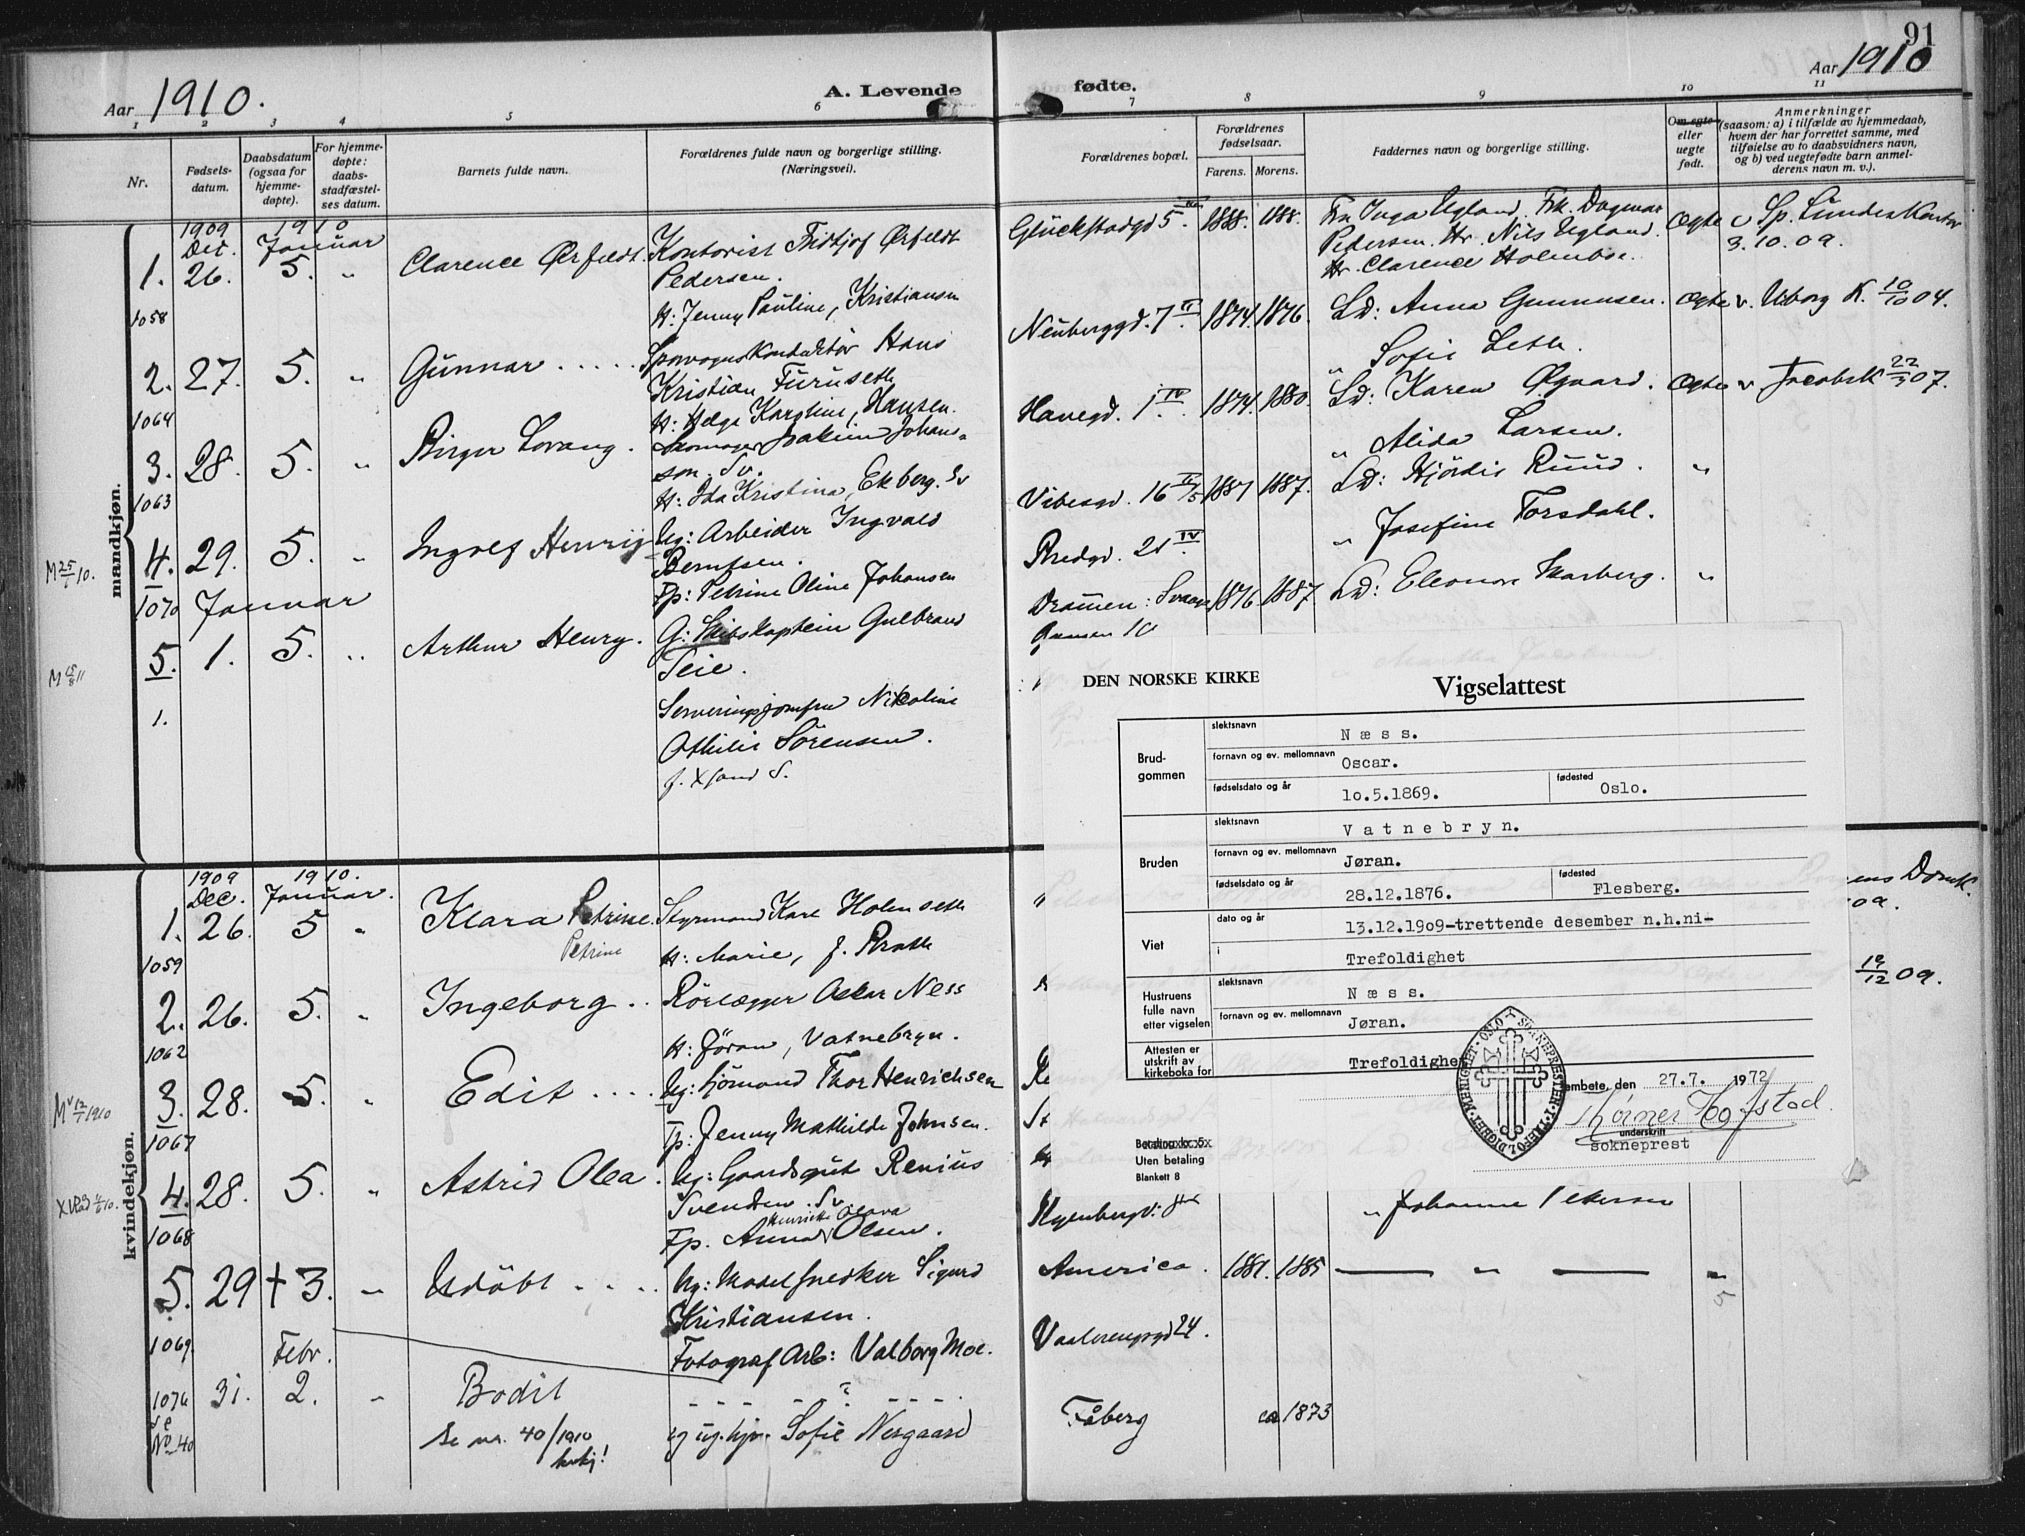 91
Aar 1910.
A. Levende
fødte.
Aar 1910
1 2 3 4 5 6 7 8 9 10 11
Nr.
Fødsels-
datum.
Daabsdatum
(ogsaa for
hjemme-
døpte).
For hjemme-
døpte:
daabs-
stadfæstel-
ses datum.
Barnets fulde navn.
Forældrenes fulde navn og borgerlige stilling.
(Næringsvei).
Forældrenes bopæl.
Forældrenes
fødselsaar.
Farens. Morens.
Faddernes navn og borgerlige stilling.
Om egte
eller
uegte
født.
Anmerkninger
(saasom: a) i tilfælde av hjemmedaab,
hvem der har forrettet samme, med
tilføielse av to daabsvidners navn,
og b) ved uegtefødte barn anmel-
derens navn m. v.).
mandkjøn.
1909 1910
Dec. Januar
1. 26. 5. " Clarence Ørfeldt. Kontorist Fridtjof Ørfeldt
Pedersen.
H: Jenny Pauline, Kristiansen
1058
Glückstadgd 5 1888. 188.
Fru Inga Ugland. Frk. Dagmar
Pedersen. Hr. Nils Ugland.
Hr. Clarence Holmboe.
Ogte
3.10.09.
2. 27. 5. " Gunnar ..... Sporvognskonduktør Hans
Kristian Furuseth
H: Helga Karoline, Hansen.
1064
Neuberggd. 7 IV. 1874. 1876.
Ld: Anna Gunnusen. Ogte v. Uborg K. 10/10 04.
" Sofie Leth.
3. 28. 5. " Birger Lovang. Skomager Joakim Johans-
son. Sv.
H: Ida Kristina, Ekberg. Sv
1063
Havegd. 1 IV. 1874. 1880.
Ld: Karen Øgaard. Ogte v. Jacobsk 22/3 07.
" Alida Larsen.
M 25/1 10.
4. 29. 5. " Ingolf Henrij Ug: Arbeider Ingvald
Berntsen.
Fp: Petrine Oline Johansen
1070
Vibesgd. 16 1887 1887.
Bredgd. 21 IV.
Ld: Hjördis Ruud. "
" Josefine Torsdahl.
Januar
M 15/8 11
5. 1. 5. " Arthur Henry. G: Skibskaptein Gulbrand
Seie.
Serveringsjomfru Nikoline
Othilie Sörensen.
1.
Dramen: Svaneg 1876 1887
Gaasen 10
Ld: Eleonora Marberg. "
DEN NORSKE KIRKE
Vigselattest
Brud-
gommen
slektsnavn
Næss.
fornavn og ev. mellomnavn
Oscar.
fødselsdato og år
10.5.1869.
fødested
Oslo.
Bruden
slektsnavn
Vatnebryn.
fornavn og ev. mellomnavn
Jøran.
fødselsdato og år
28.12.1876.
fødested
Flesberg.
Viet
dato og år
13.12.1909-trettende desember n.h.ni-
i
Trefoldighet
Hustruens
fulle navn
etter vigselen
slektsnavn
Næss.
fornavn og ev. mellomnavn
Jøran.
Attesten er
utskrift av
kirkeboka for
Trefoldighet
embete, den 27.7. 1972
Kørner Hofstad
underskrift
sokneprest
SOKNEPRESTEN I TREFOLDIGHET MENIGHET · OSLO
Betaling kr. 5
Uten betaling
Blankett 8
kvindekjøn.
1909 1910.
Dec. Januar.
1. 26. 5 " Klara Petrine. Styrmand Karl Holmseth
Petrine
H: Marie, f. Brath
1059
2. 26. 5. " Ingeborg .. Rörlægger Oskar Ness
H: Jöran, Vatnebryn.
1062
19/12 09.
1910
3. 28. 5. " Edit .... Ug: Sjömand Thor Henrichsen
Fp: Jenny Mathilde Johnsen.
1067
4. 28. 5. " Astrid Olea. Ug: Gaardsgut Renius
Svendsen. Sv
Henriette Olava
Fp. Anna Olsen.
1068
Ryenbergv:
" Johanne Petersen
5. 29 + 3. " Udöbt .... Ug: Modelsnedker Sigurd
Kristiansen.
Fotograf Arb: Valborg Moe.
1069
America. 1881. 1885 — " —
Vaalerengsgd 24.
Febr.
1076 31. 2. " Bodil
Se No 40
Se nr. 40/1910
kvkj!
Sofie Nesgaard
Fåberg ca 1873